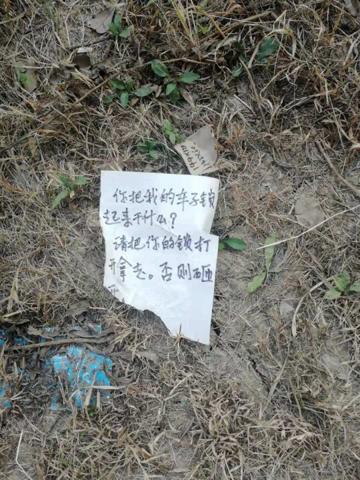 你把我的车子锁
起来干什么？
请把你的锁打
开拿走。否则砸